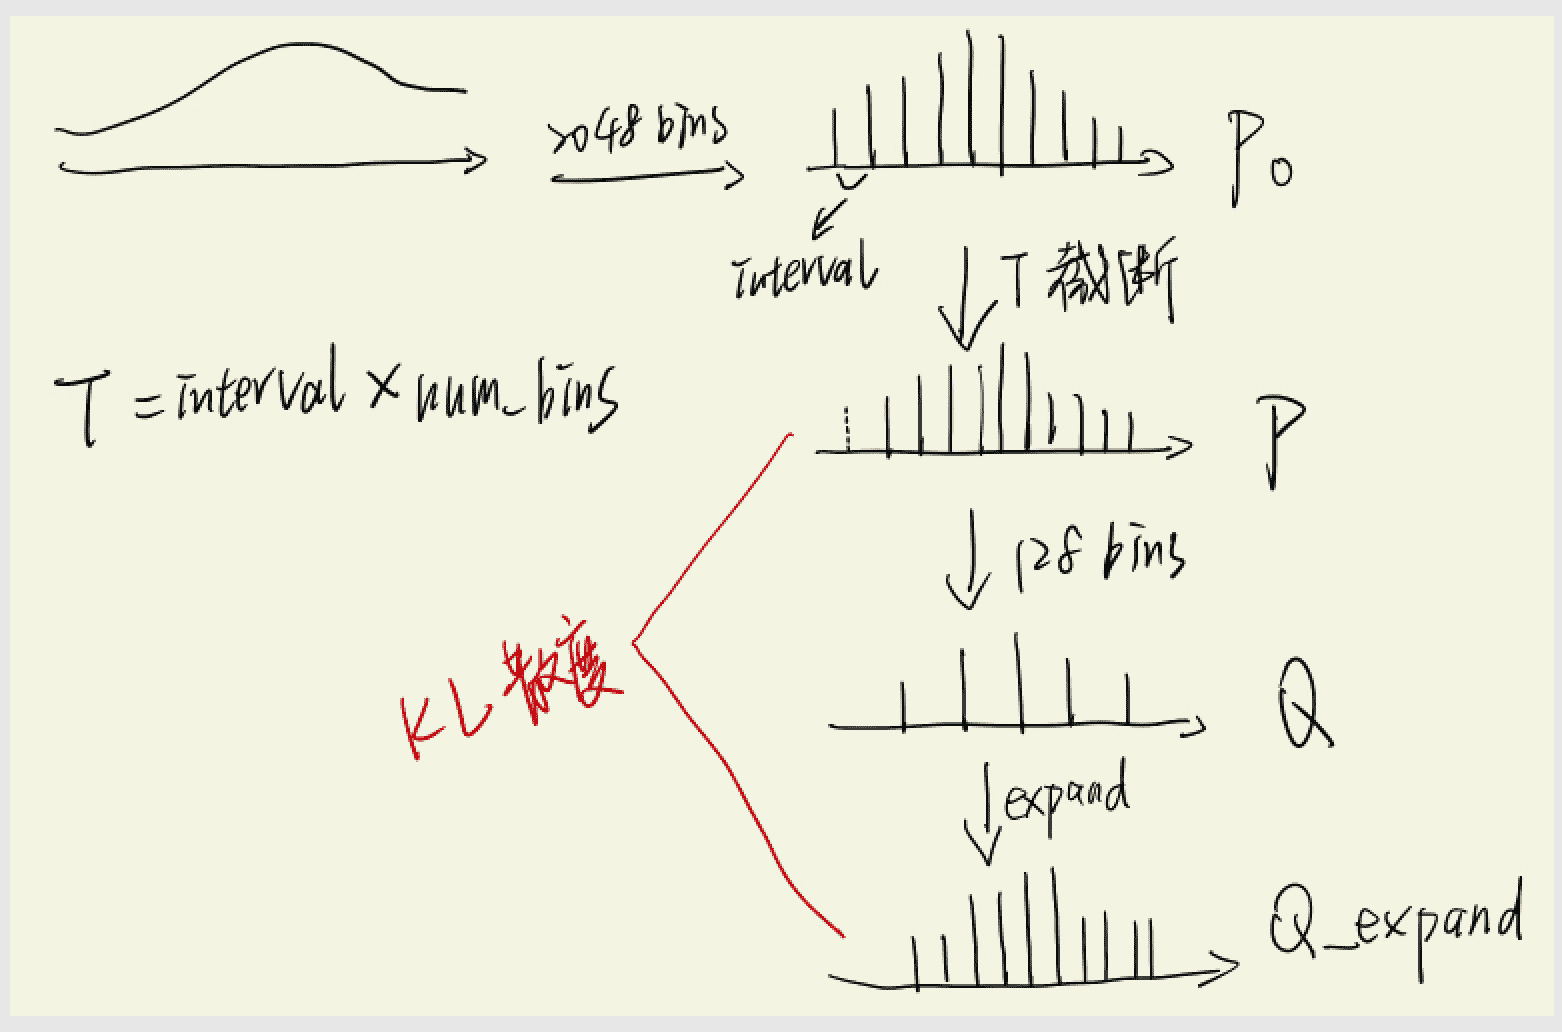 2048 bins
P0
interval
T 截断
T = interval × num_bins
P
128 bins
KL 散度
Q
expand
Q_expand